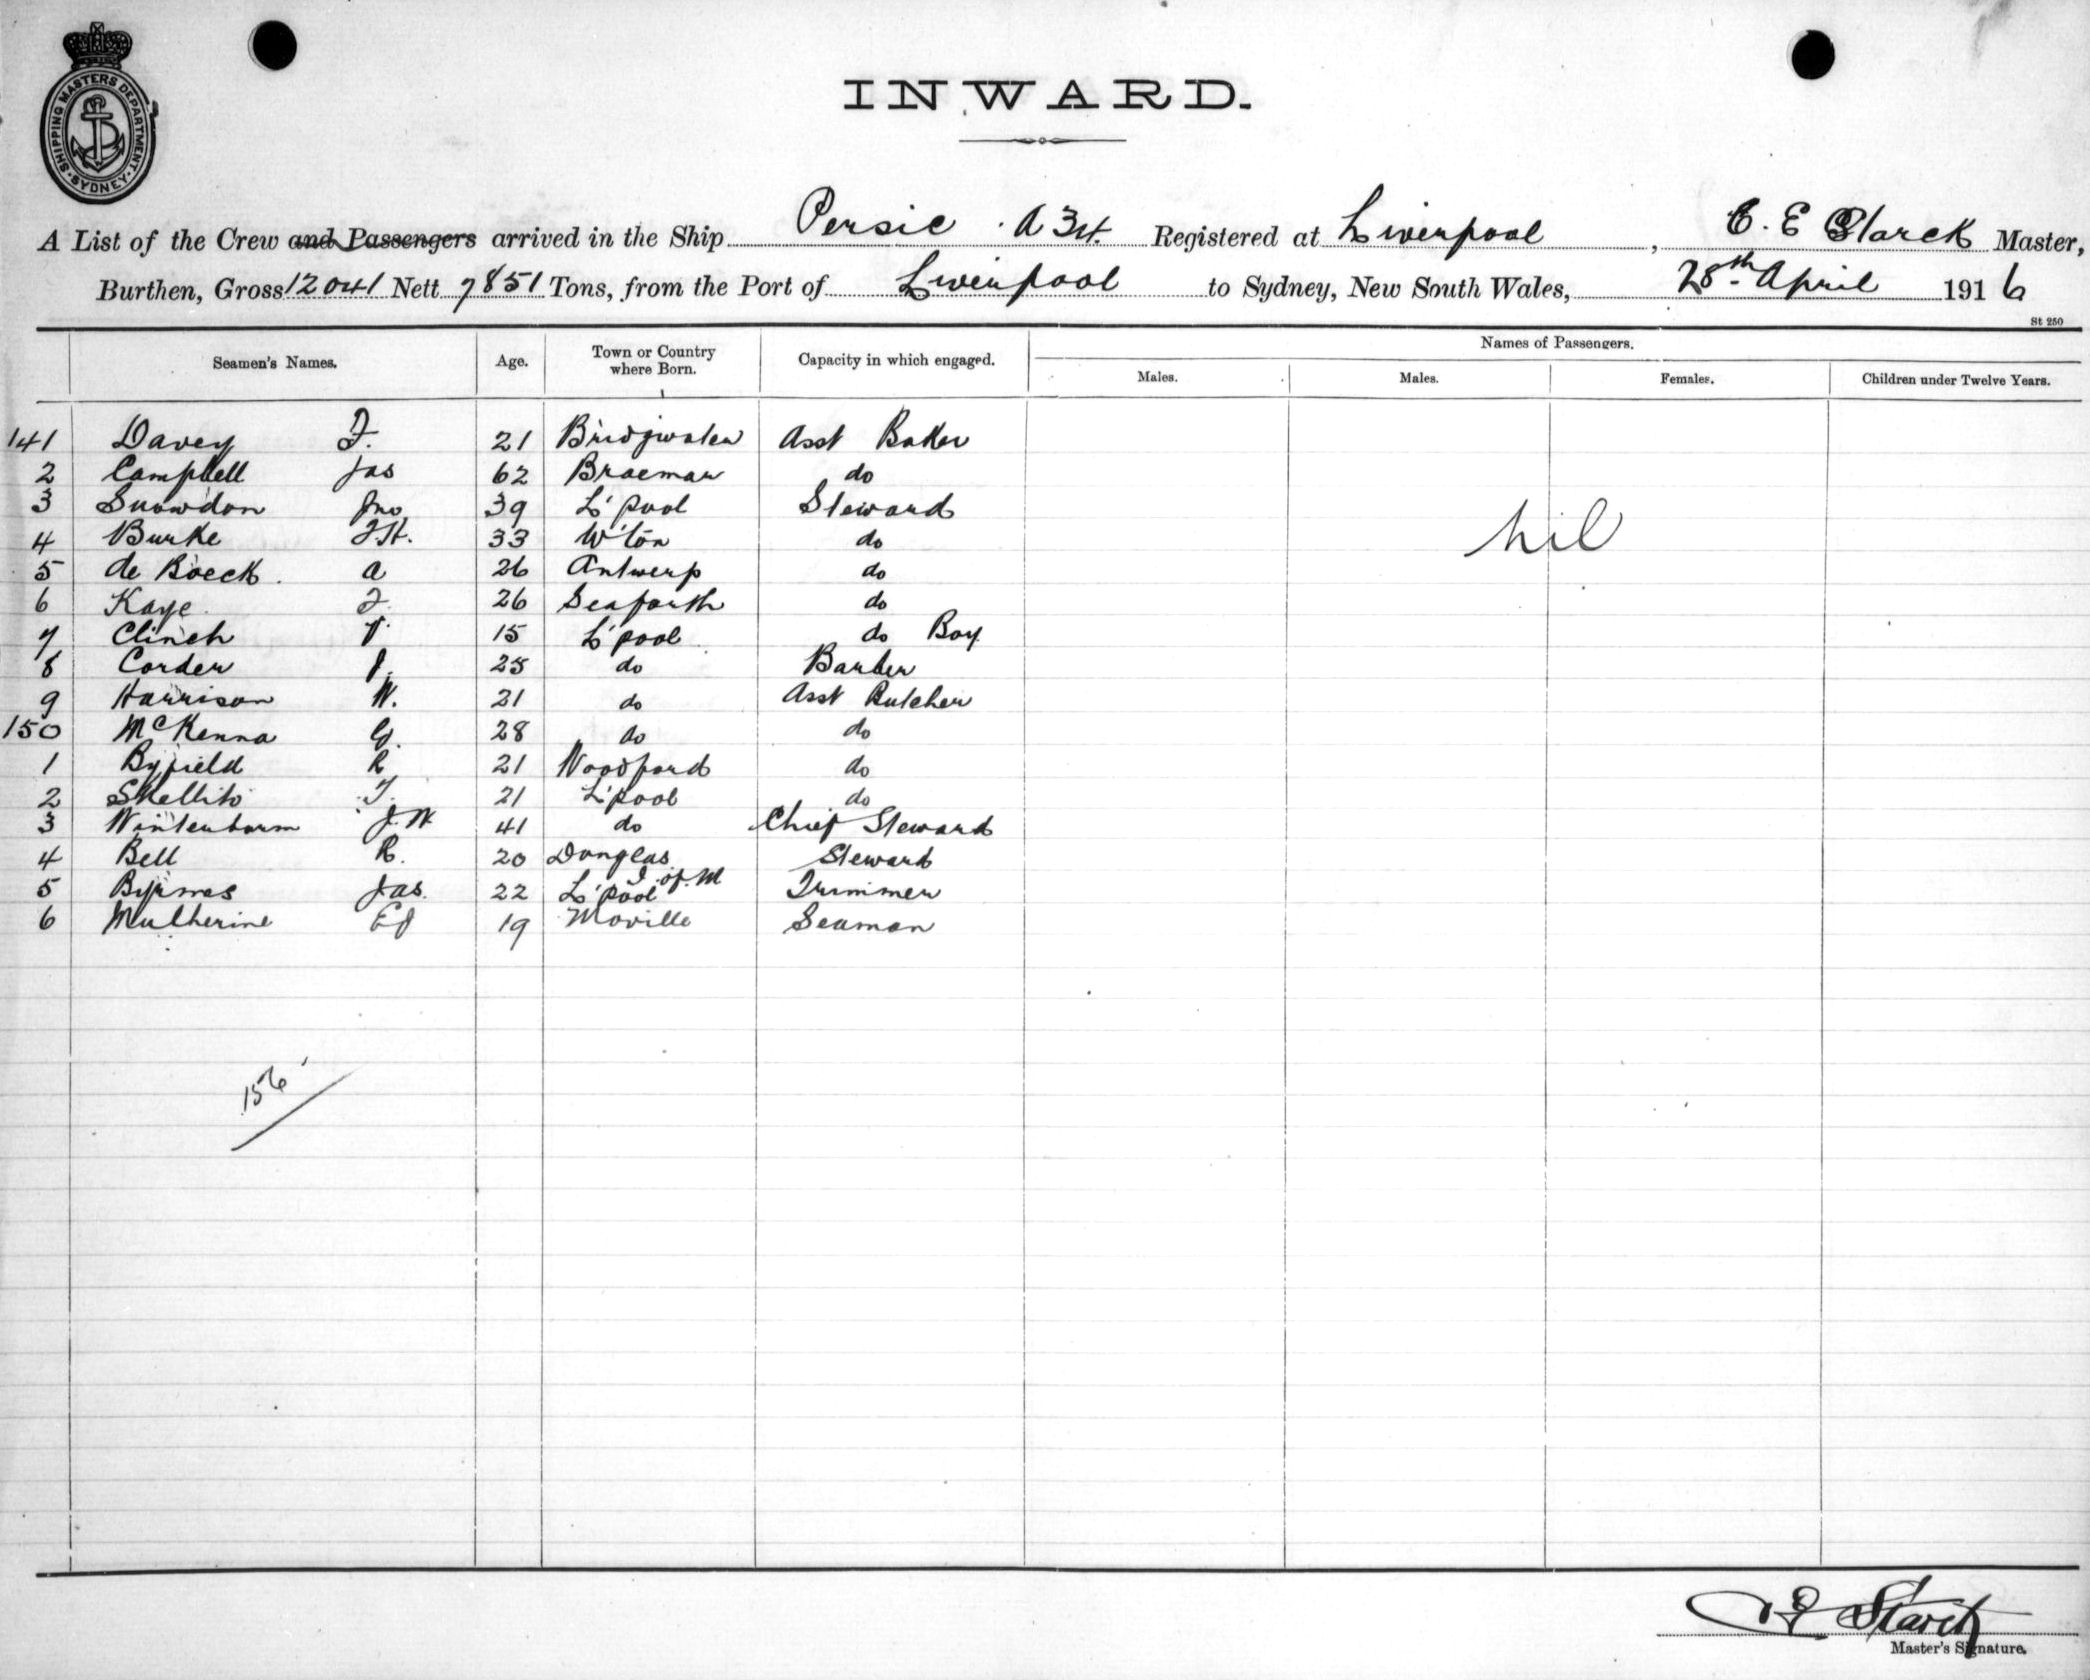 SHIPPING MASTERS DEPARTMENT
SYDNEY
INWARD.
A List of the Crew and Passengers arrived in the Ship Persic A34. Registered at Liverpool, C. E Starck Master,
Burthen, Gross 12041 Nett 7851 Tons, from the Port of Liverpool to Sydney, New South Wales, 28th April 1916
St 250
Seamen's Names. Age. Town or Country where Born. Capacity in which engaged. Names of Passengers.
Males. Males. Females. Children under Twelve Years.
141 Davey F. 21 Bridgwater Asst Baker
2 Campbell Jas 62 Braemar do
3 Snowdon Jno 39 L'pool Steward
4 Burke F.H. 33 W'ton do
nil
5 de Boeck. A 26 Antwerp do
6 Kaye F. 26 Seaforth do
7 Clinch 15 L'pool do Boy
8 Corder J. 25 do Barber
9 Harrison W. 21 do Asst Butcher
150 McKenna G. 28 do do
1 Byfield R 21 Woodford do
2 Skellito T. 21 L'pool do
3 J.W 41 do Chief Steward
4 Bell R. 20 Douglas I. of. M Steward
5 Byrnes Jas. 22 L'pool Trimmer
6 Mulherine Ed 19 Moville Seaman
156
C E Starck
Master's Signature.